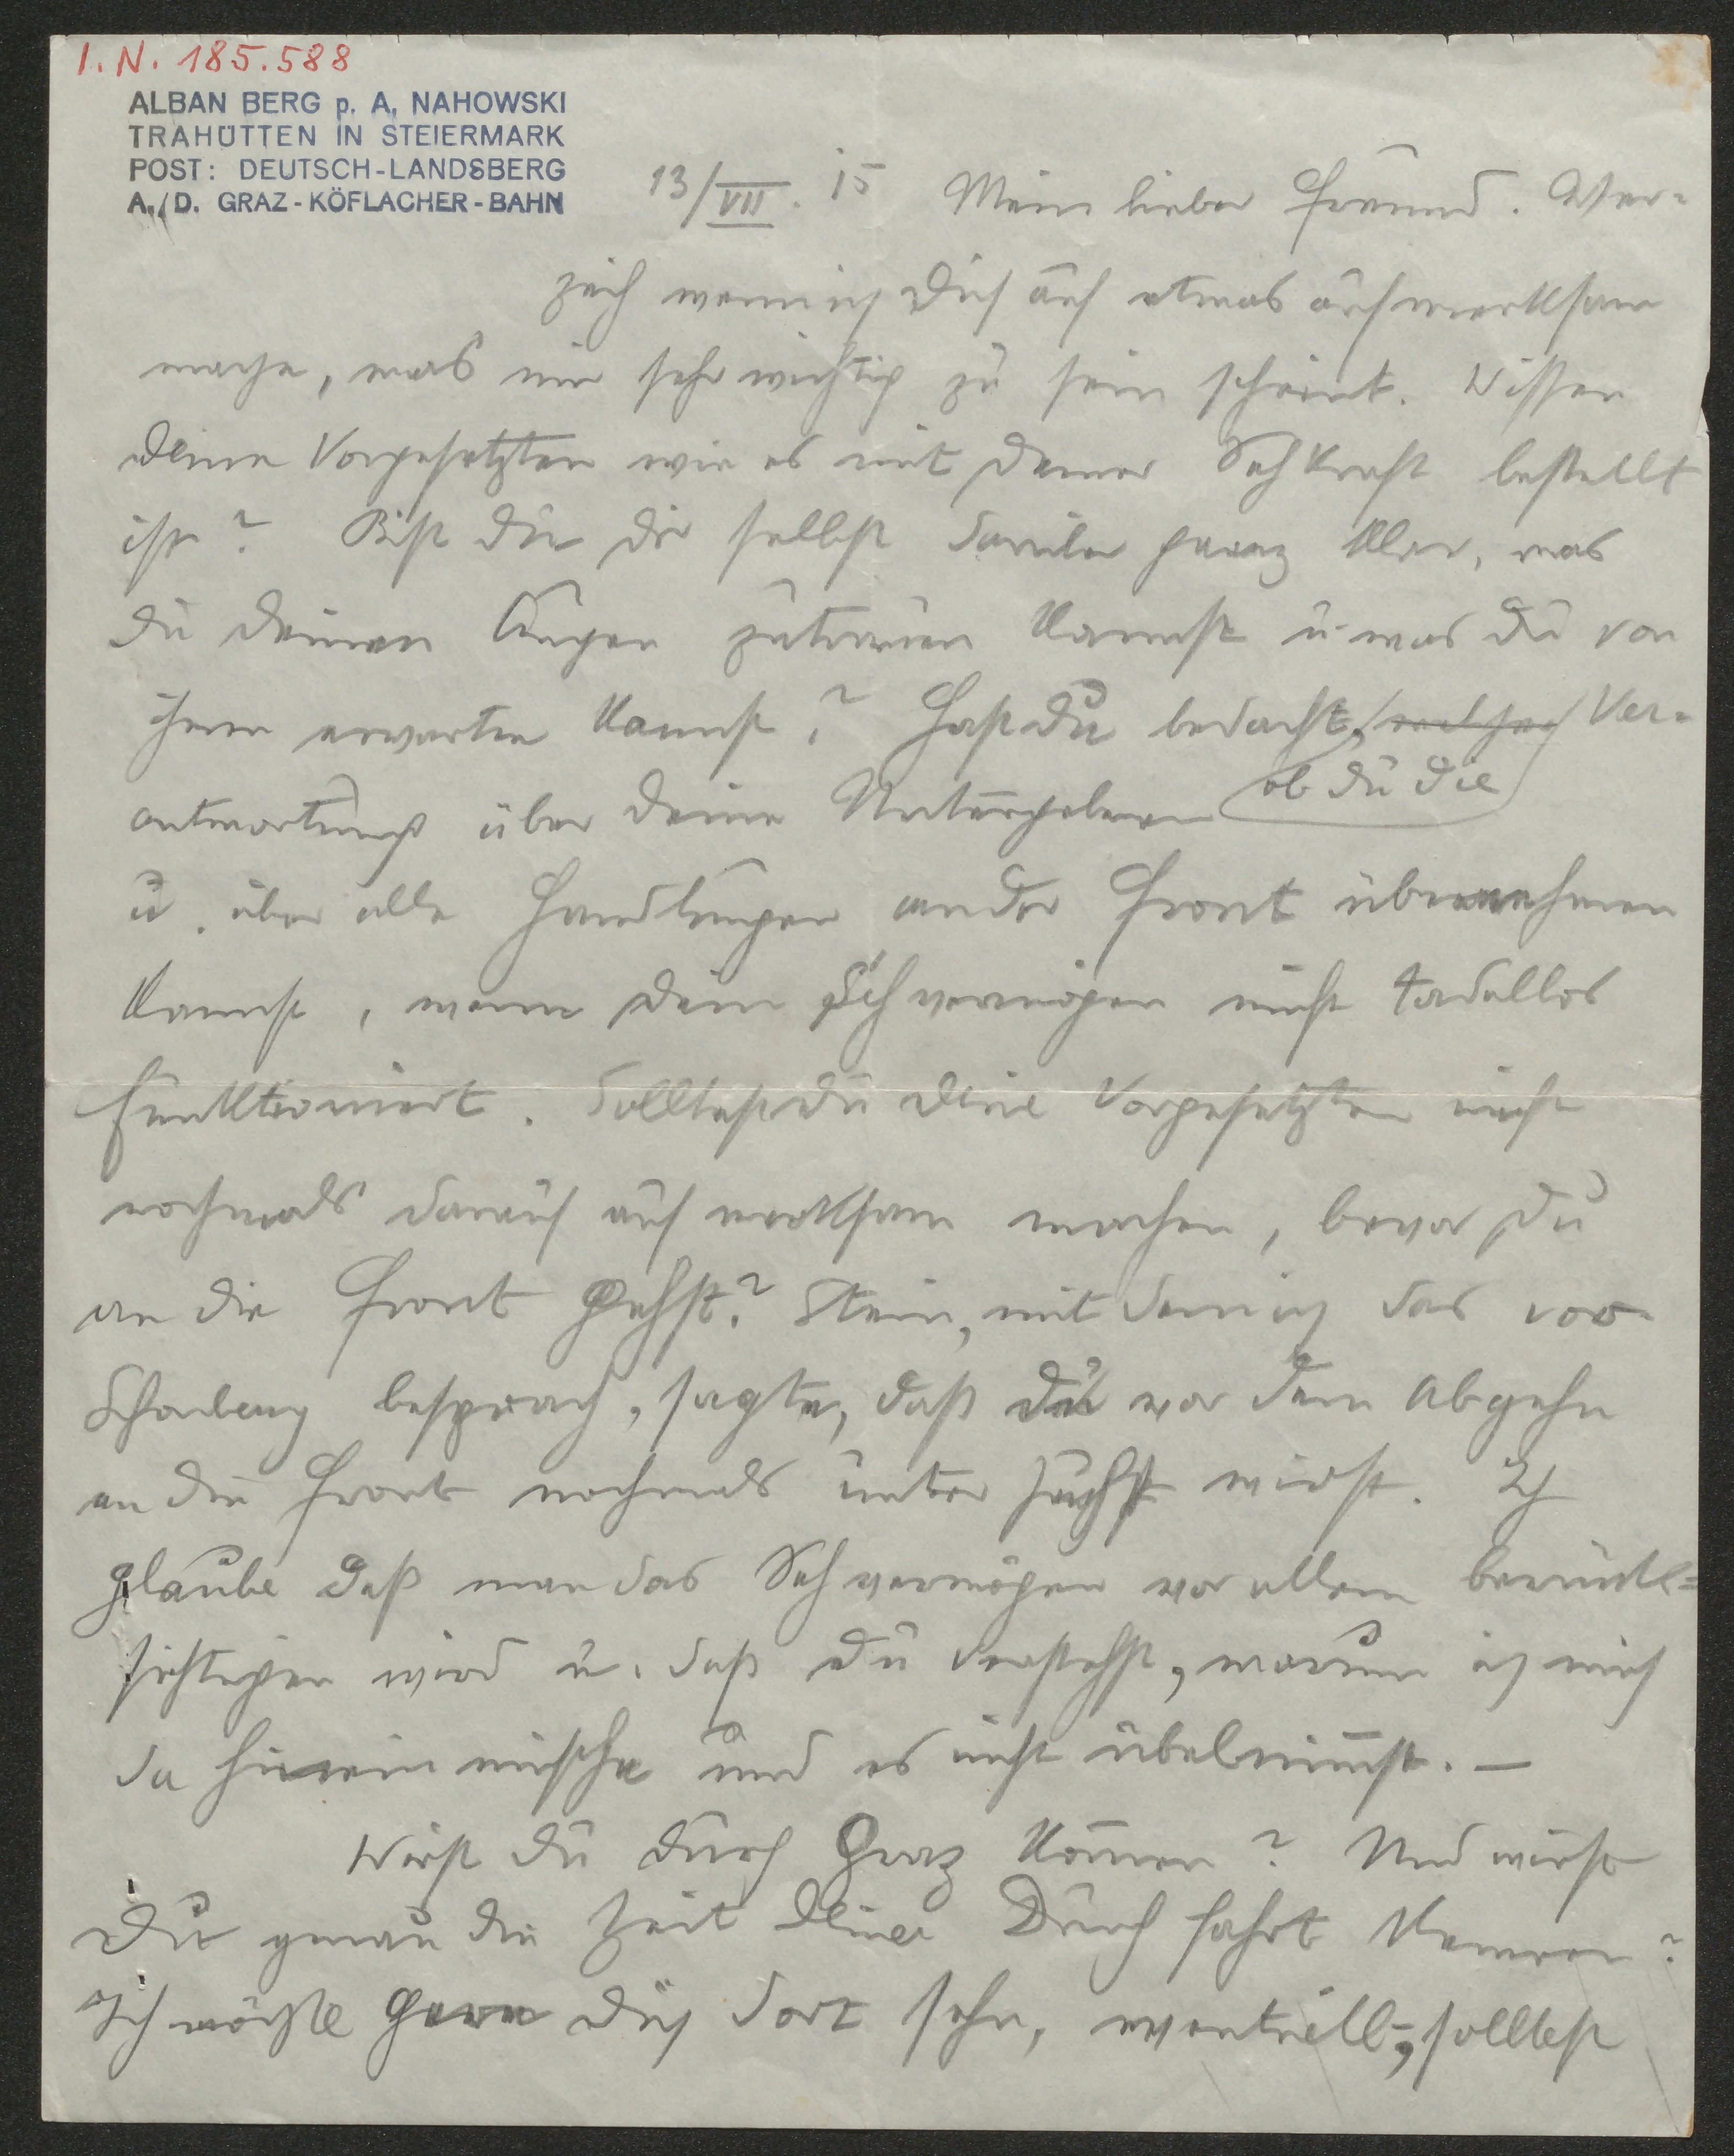 I. N. 185.588
ALBAN BERG p. A. NAHOWSKI
TRAHÜTTEN IN STEIERMARK
POST: DEUTSCH-LANDSBERG
A./D. GRAZ-KÖFLACHER-BAHN
13/VII. 15 Mein lieber Freund. Ver-
zeih wenn ich Dich auf etwas aufmerksam
mache, was mir sehr wichtig zu sein scheint. Wissen
deine Vorgesetzten wie es mit Deiner Sehkraft bestellt
ist? Bist Du dir selbst darüber ganz klar, was
Du deinen Augen zutrauen kannst u. was Du von
ihnen erwarten kannst? Hast Du bedacht, welche Ver-
ob Du die
antwortung über deine Untergebenen
u. über alle Handlungen an der Front übernehmen
kannst, wenn dein Sehvermögen nicht tadellos
funktioniert. Solltest Du deine Vorgesetzten nicht
nochmals darauf aufmerksam machen, bevor Du
an die Front gehst? Stein, mit dem ich das vor
Schönberg besprach, sagte, daß Du vor dem Abgehn
an die Front nochmals untersucht wirst. Ich
glaube daß man das Sehvermögen vor allem berück-
sichtigen wird u. daß Du verstehst, warum ich mich
da hineinmische und es nicht übelnimmst. —
Wirst Du durch Graz kommen? Und wirst
Du genau die Zeit deiner Durchfahrt kennen?
Ich möchte gern Dich dort sehn, eventuell, solltest